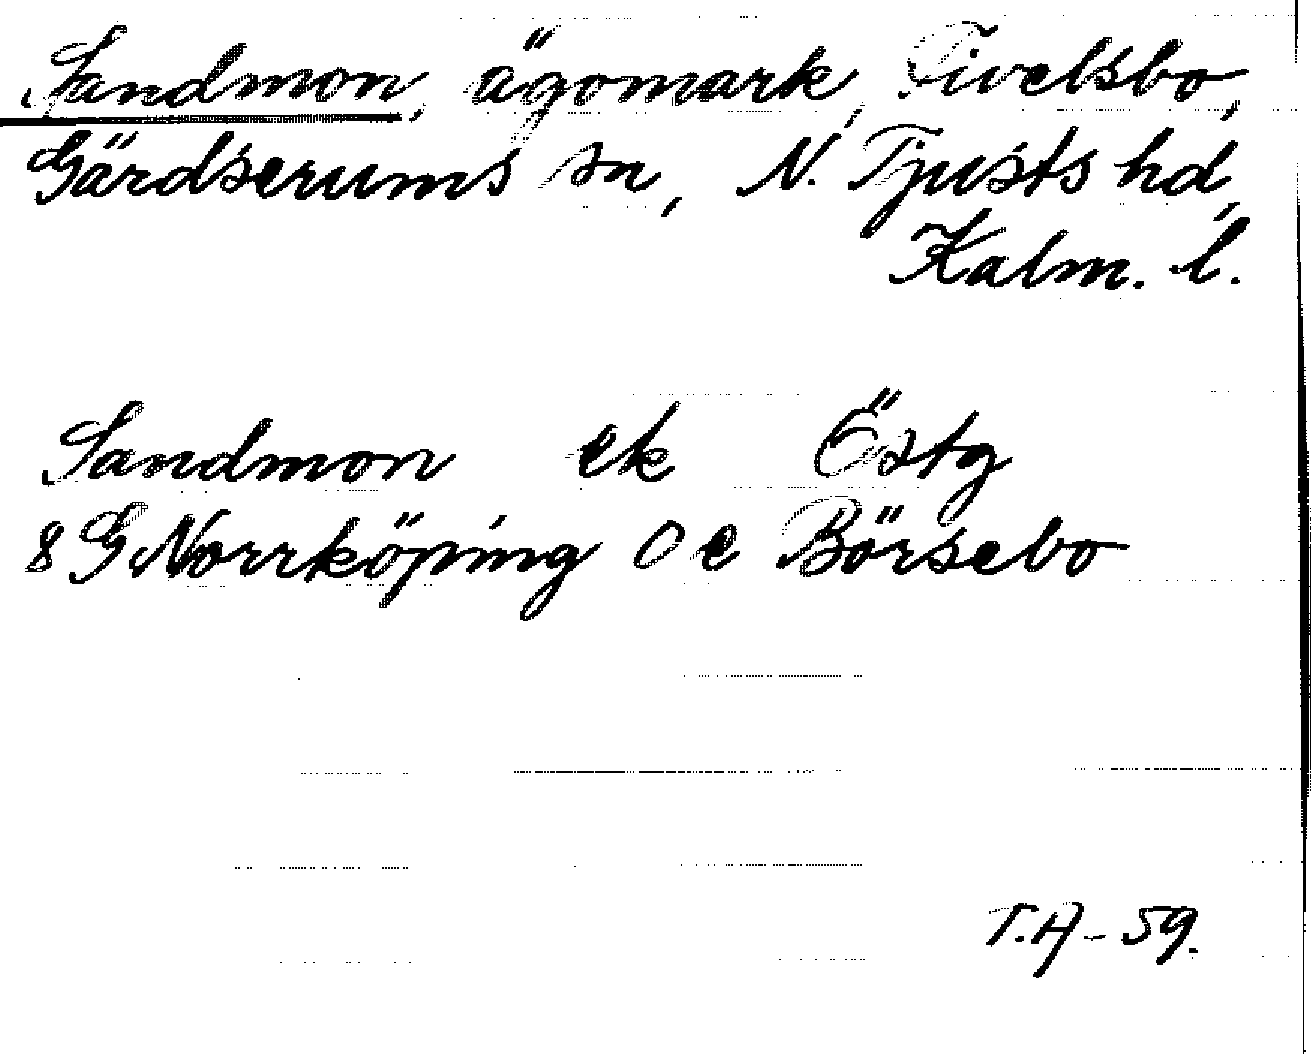 Sandmon, ägomark, Fivelsbo,
Gärdserums sn, N. Tjusts hd,
Kalm. l.
Sandmon ek Östg
8 G Norrköping O e Börsebo
T.A-59.